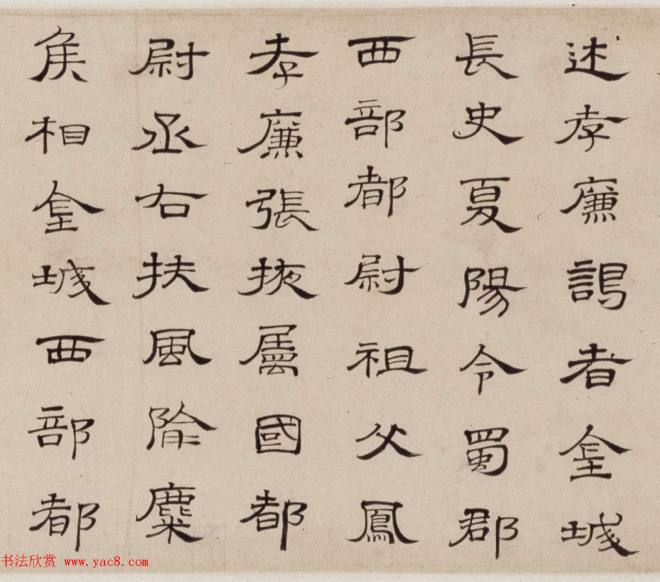 述孝廉謁者金城
長史夏陽令蜀郡
西部都尉祖父鳳
孝廉張掖屬國都
尉丞右扶風隃麋
侯相金城西部都
书法欣赏 www.yac8.com